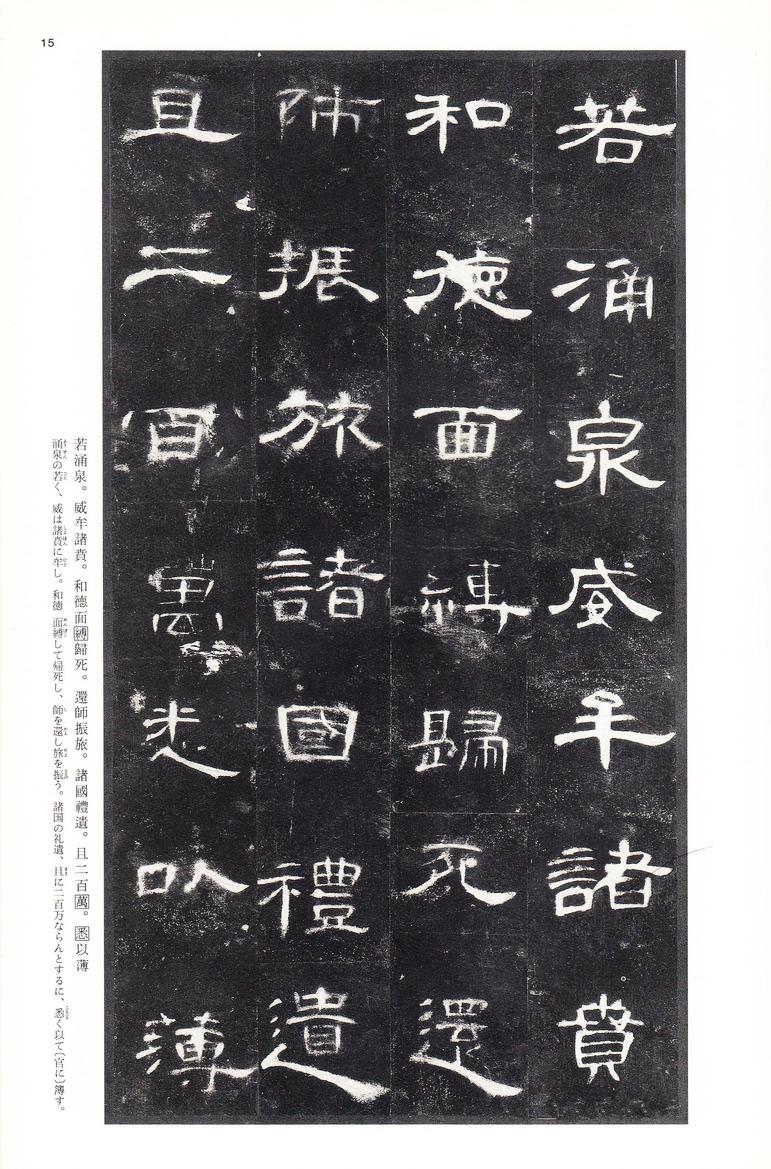 15
若涌泉威牟諸賁
和德面縛歸死還
師振旅諸國禮遺
且二百萬悉以薄
若涌泉。威牟諸賁。和德面縛歸死。還師振旅。諸國禮遺。且二百萬。悉以薄
涌泉の若く、威は諸賁に牟し。和德 面縛して帰死し、師を還し旅を振う。諸国の礼遺、且に二百万ならんとするに、悉く以て〔官に〕簿す。